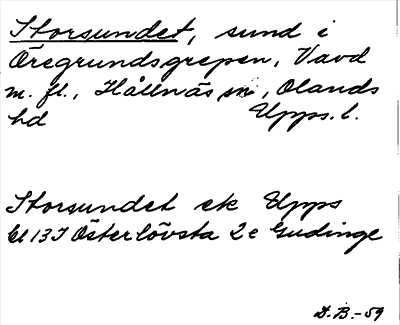 Storsundet, sund i
Öregrundsgrepen, Vavd
m. fl., Hållnäs sn, Olands
hd Upps. l.
Storsundet ek Upps
Bl 13 I Österlövsta 2 e Gudinge
D. B. - 59